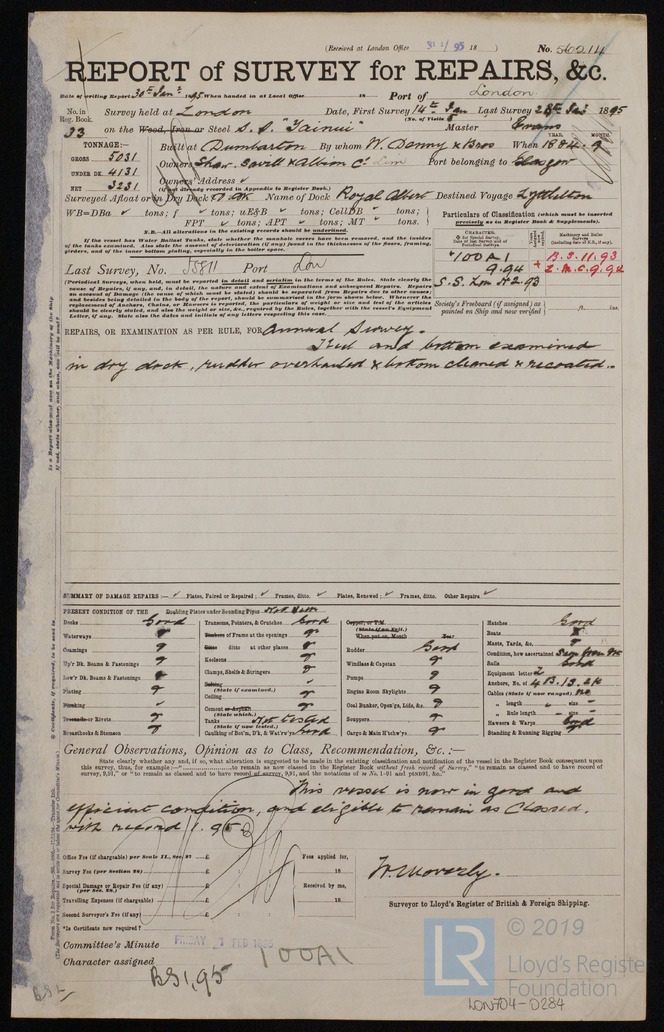 (Received at London Office 31/1/95 18 )
No. 56214
REPORT of SURVEY for REPAIRS, &c.
Date of writing Report 30th Jany 1895 When handed in at Local Office 18 Port of London
No. in Reg. Book. Survey held at London Date, First Survey 14th Jan Last Survey 1895
(No. of Visits )
33 on the Wood, Iron or Steel S.S. "Tainui" Master Evans
TONNAGE:— Built at Dumbarton By whom W. Denny & Bros When 1884. 9
YEAR. MONTH.
GROSS 5031
UNDER DK. 4131
NET 3231
Owners Shaw Savill & Albion Co. Lim Port belonging to Glasgow
Owners' Address
(if not already recorded in Appendix to Register Book.)
Surveyed Afloat or in Dry Dock D. Dk Name of Dock Royal Albert Destined Voyage Lyttelton
WB=DBa tons; f tons; uE&B tons; CellDB tons;
FPT tons; APT tons; MT tons.
N.B.—All alterations in the existing records should be underlined.
If the vessel has Water Ballast Tanks, state whether the manhole covers have been removed, and the insides
of the tanks examined. Also state the amount of deterioration (if any) found in the thicknesses of the floors, framing,
girders, and of the inner bottom plating, especially in the boiler space.
Particulars of Classification (which must be inserted
precisely as in Register Book & Supplements).
+100A1 B.S. 11.93
9.94 + L.M.C. 9.94
S.S. Lon No 2.93
Last Survey, No. 55811 Port Lon
(Periodical Surveys, when held, must be reported in detail and seriatim in the terms of the Rules. State clearly the
cause of Repairs, if any, and, in detail, the nature and extent of Examinations and subsequent Repairs. Repairs
on account of Damage (the cause of which must be stated) should be separated from Repairs due to other causes;
and besides being detailed in the body of the report, should be summarised in the form shown below. Whenever the
replacement of Anchors, Chains, or Hawsers is reported, the particulars of weight or size and test of the articles
should be clearly stated, and also the weight or size, &c., required by the Rules, together with the vessel's Equipment
Letter, if any. State also the dates and initials of any letters respecting this case.
Society's Freeboard (if assigned) as
painted on Ship and now verified ft. ins.
REPAIRS, OR EXAMINATION AS PER RULE, FOR Annual Survey.
Keel and bottom examined
in dry dock, rudder overhauled & bottom cleaned & recoated.
SUMMARY OF DAMAGE REPAIRS:— Plates, Faired or Repaired; Frames, ditto. Plates, Renewed; Frames, ditto. Other Repairs
PRESENT CONDITION OF THE Doubling Plates under Sounding Pipes Not seen
Decks Good
Waterways
Coamings
Up'r Dk. Beams & Fastenings
Low'r Dk. Beams & Fastenings
Plating
Planking
Treenails or Rivets
Breasthooks & Stemson
Transoms, Pointers, & Crutches Good
Timbers of Frame at the openings
ditto at other places
Keelsons
Clamps, Shelfs & Stringers
Salting
(State if examined.)
Ceiling
Cement or Asphalt
(State which.)
Tanks Not tested
(State if now tested.)
Caulking of Bot'm, D'k, & Wat'rw'ys Good
Copper, or Y.M.
(State if on Felt.)
When put on, Month Year
Rudder Good
Windlass & Capstan
Pumps
Engine Room Skylights
Coal Bunker, Open'gs, Lids, &c.
Scuppers
Cargo & Main H'tchw'ys
Hatches Good
Boats
Masts, Yards, &c.
Condition, how ascertained Seen from Dk
Sails Good
Equipment letter
Anchors, No. of 4 B. 1 S. 2 K
Cables (State if now ranged) no
„ length „ size
„ Rule length „ size
Hawsers & Warps Good
Standing & Running Rigging
General Observations, Opinion as to Class, Recommendation, &c. :—
State clearly whether any, and if so, what alteration is suggested to be made in the existing classification and notification of the vessel in the Register Book consequent upon
this survey, thus, for example :—" to remain as now classed in the Register Book without fresh record of Survey," "to remain as classed and to have record of
survey, 9,91," or "to remain as classed and to have record of survey, 9,91, and the notations of SS No. 1-91 and ptND91, &c."
This vessel is now in good and
efficient condition, and eligible to remain as Classed.
with record 1.95
Office Fee (if chargeable) per Scale II., Sec. 27 £
Survey Fee (per Section 29) £
Special Damage or Repair Fee (if any)
(per Sec. 28.) £
Travelling Expenses (if chargeable) £
Second Surveyor's Fee (if any) £
Fees applied for,
18
Received by me,
18
Surveyor to Lloyd's Register of British & Foreign Shipping.
*Is Certificate now required?
Committee's Minute FRIDAY 1 FEB 1895
Character assigned 100A1
BS1,95
© 2019
LR
Lloyd's Register
Foundation
LON704-0284